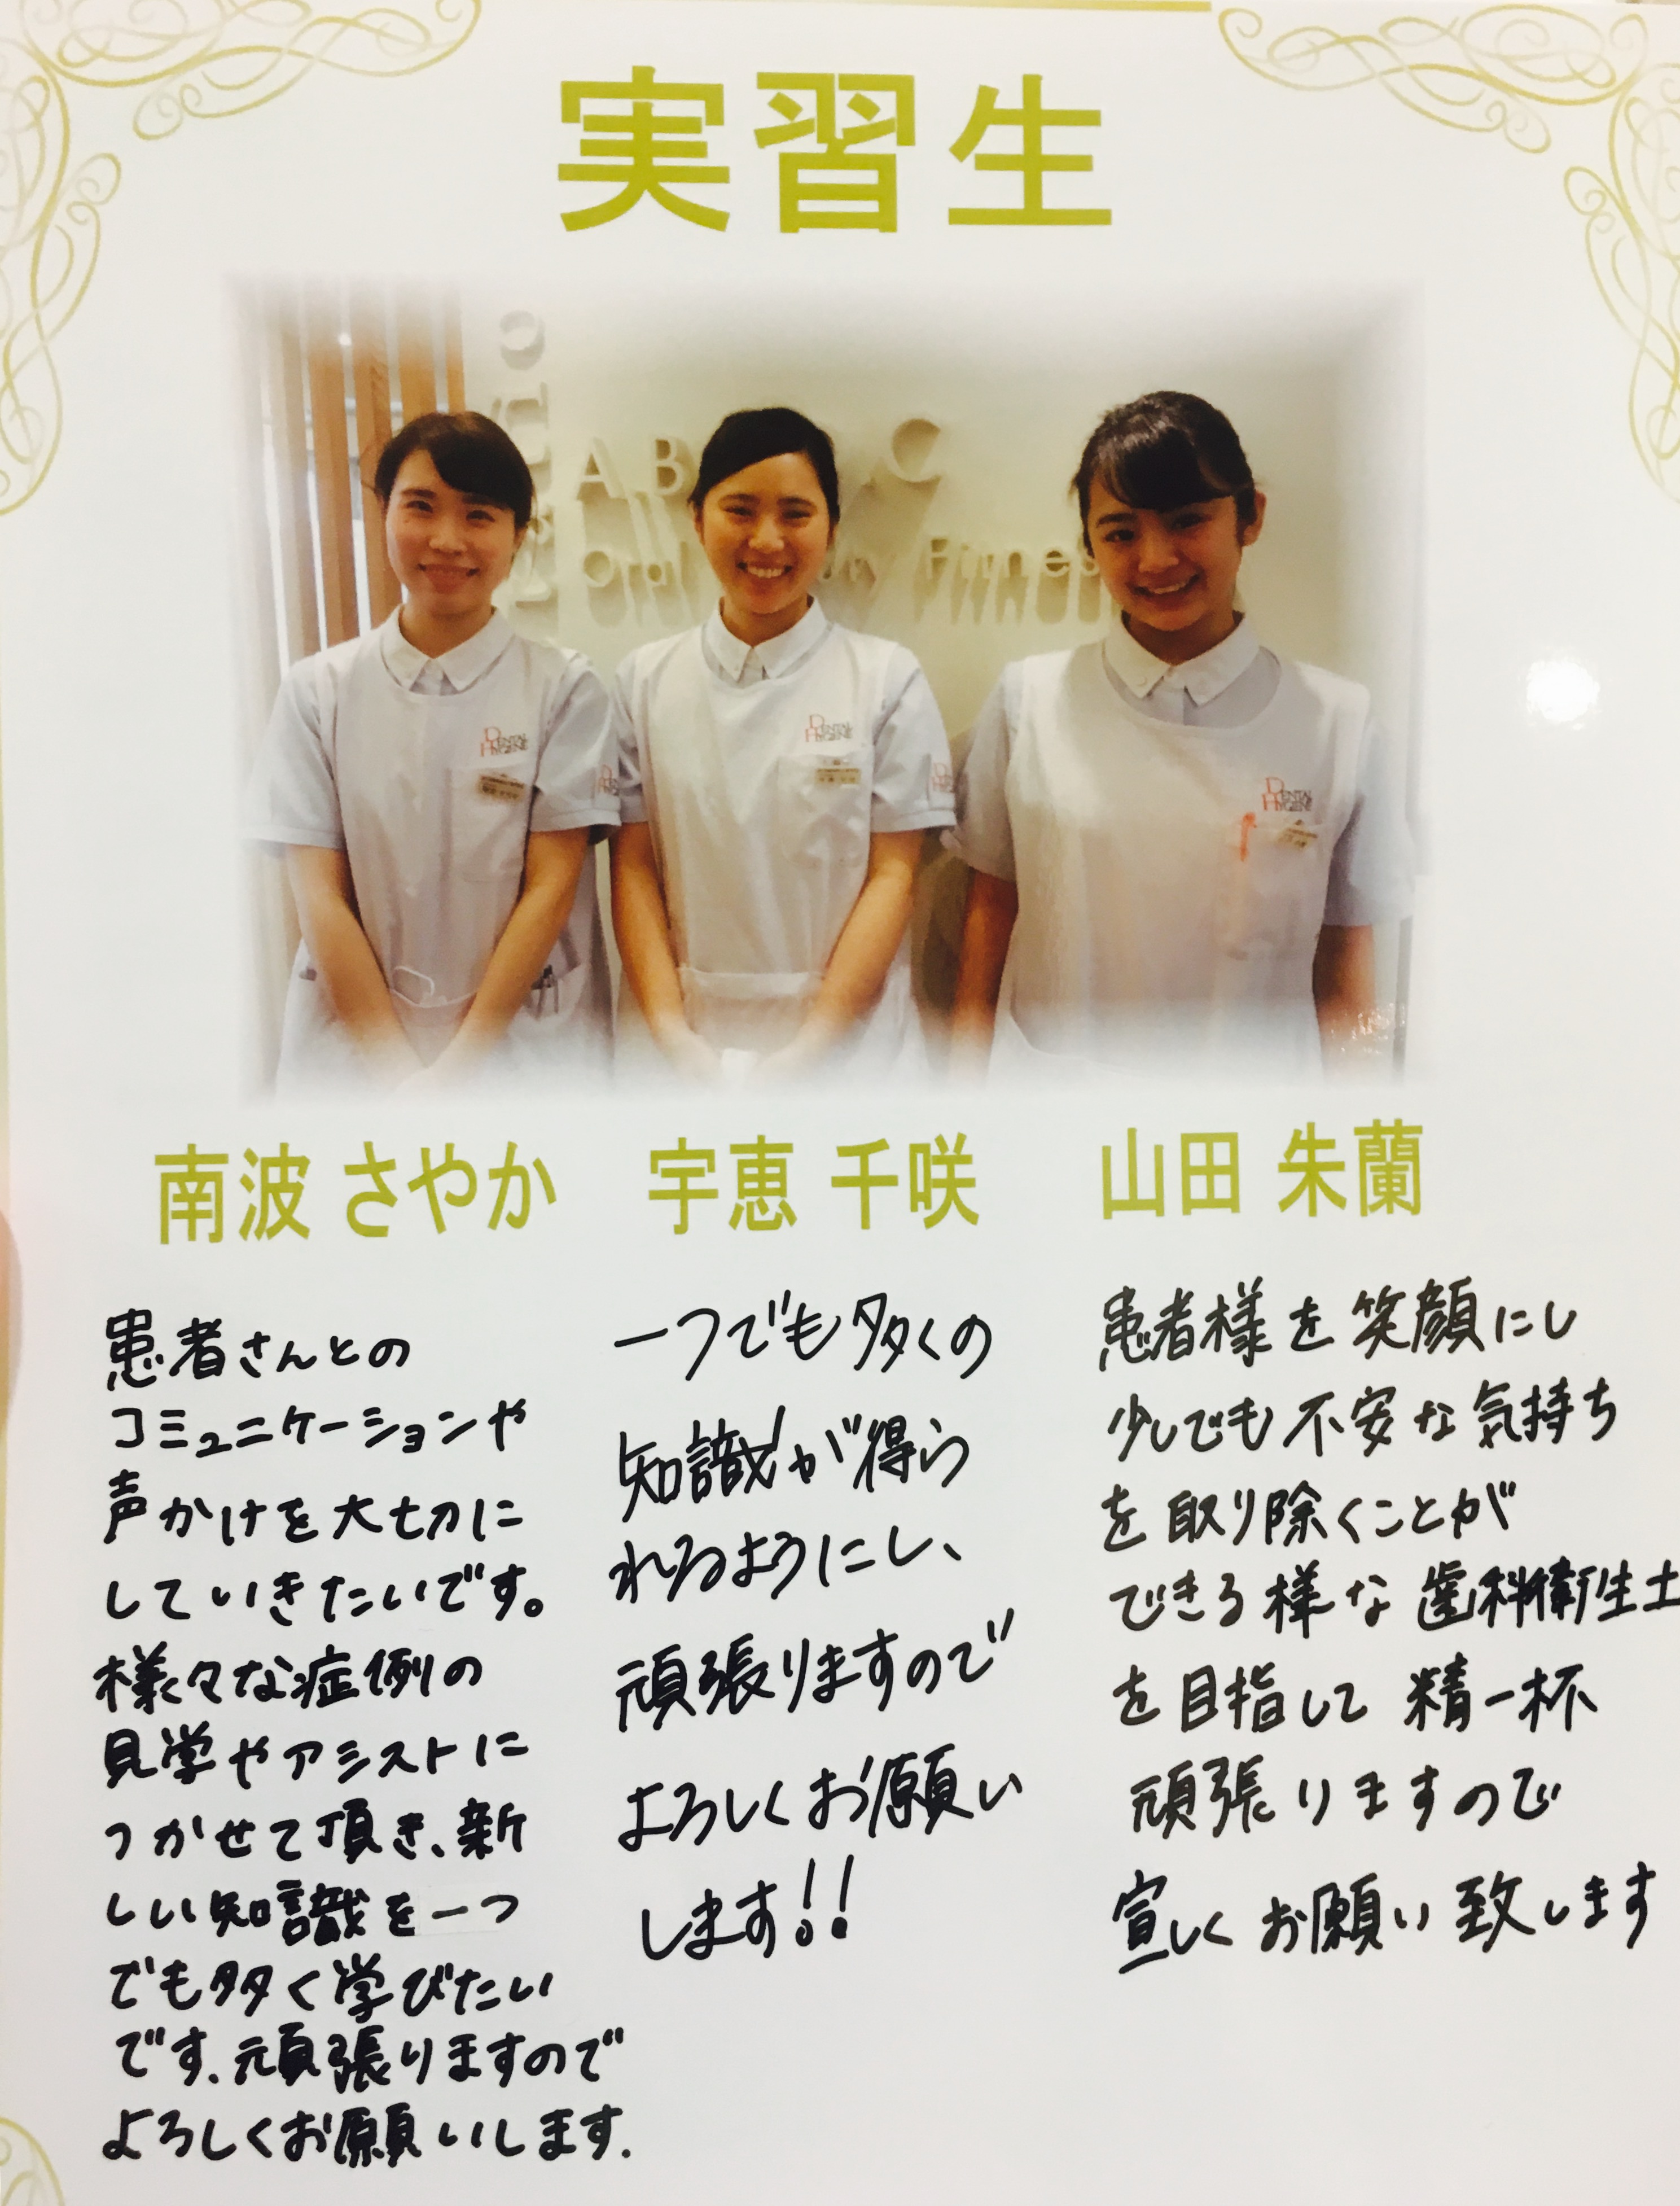 実習生
A B C
Oral Fitness
DENTAL
HYGIENE
DENTAL
HYGIENE
DENTAL
HYGIENE
南波 さやか
宇恵 千咲
山田 朱蘭
患者さんとの
コミュニケーションや
声かけを大切に
していきたいです。
様々な症例の
見学やアシストに
つかせて頂き、新
しい知識を一つ
でも多く学びたい
です.頑張りますので
よろしくお願いします.
一つでも多くの
知識が得ら
れるようにし、
頑張りますので
よろしくお願い
します!!
患者様を笑顔にし
少しでも不安な気持ち
を取り除くことが
できる様な歯科衛生士
を目指して精一杯
頑張りますので
宜しくお願い致します